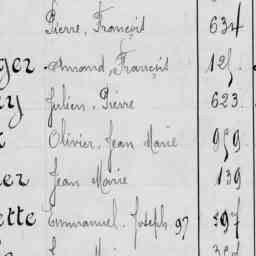 Pierre, François 634
ger Amand, François 125
Julien, Pierre 623
Olivier, Jean Marie 959
er Jean Marie 139
ette Emmanuel. Joseph 97 397